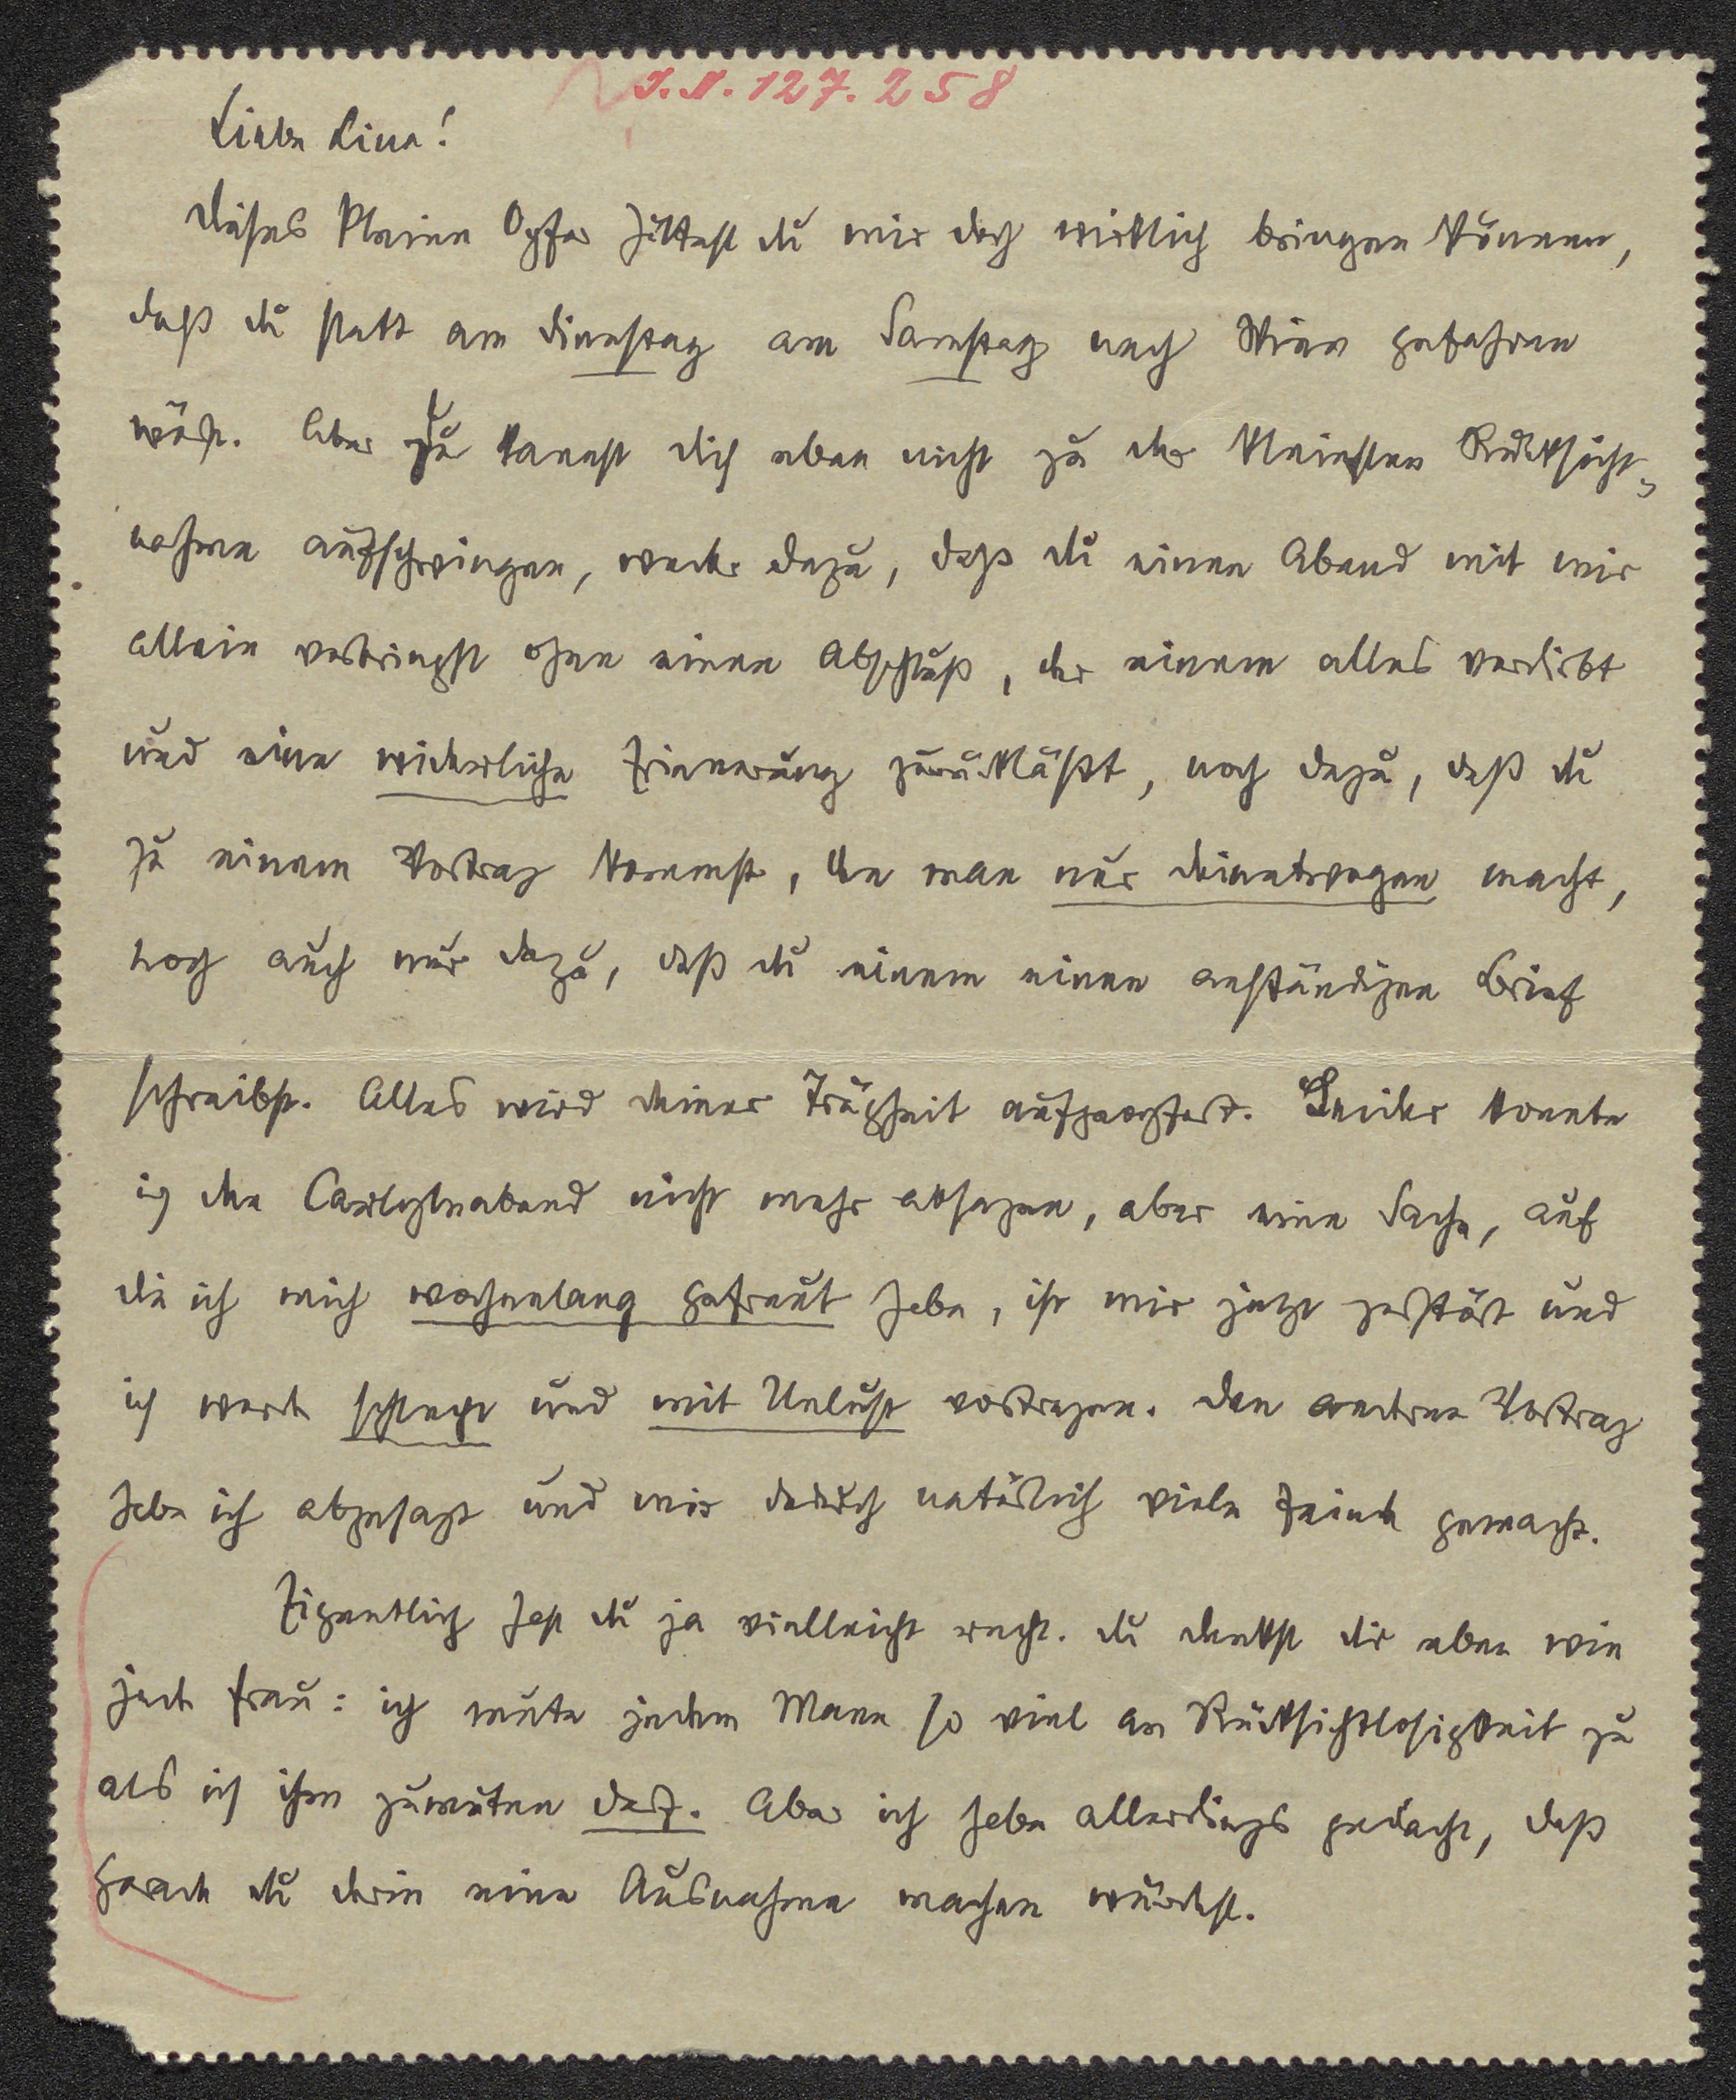 I.N. 127.258
Liebe Lina!
Dieses kleine Opfer hättest du mir doch wirklich bringen können,
daß du statt am Dienstag am Samstag nach Wien gefahren
wärst. Aber du kannst dich eben nicht zu der kleinsten Rücksicht-
nahme aufschwingen, weder dazu, daß du einen Abend mit mir
allein verbringst ohne einen Abschluß, der einem alles verdirbt
und eine widerliche Erinnerung zurückläßt, noch dazu, daß du
zu einem Vortrag kommst, den man nur deinetwegen macht,
noch auch nur dazu, daß du einem einen anständigen Brief
schreibst. Alles wird deiner Trägheit aufgeopfert. Leider konnte
ich den Carlyleabend nicht mehr absagen, aber eine Sache, auf
die ich mich wochenlang gefreut habe, ist mir jetzt zerstört und
ich werde schlecht und mit Unlust vortragen. Den anderen Vortrag
habe ich abgesagt und mir dadurch natürlich viele Feinde gemacht.
Eigentlich hast du ja vielleicht recht. Du denkst dir eben wie
jede Frau: ich mute jedem Mann so viel an Rücksichtslosigkeit zu
als ich ihm zumuten darf. Aber ich habe allerdings gedacht, daß
gerade du darin eine Ausnahme machen würdest.